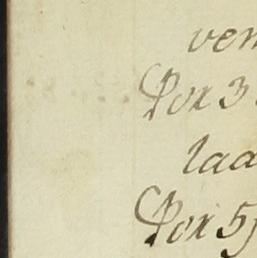 ven
Pox 3
laa
Pox 5